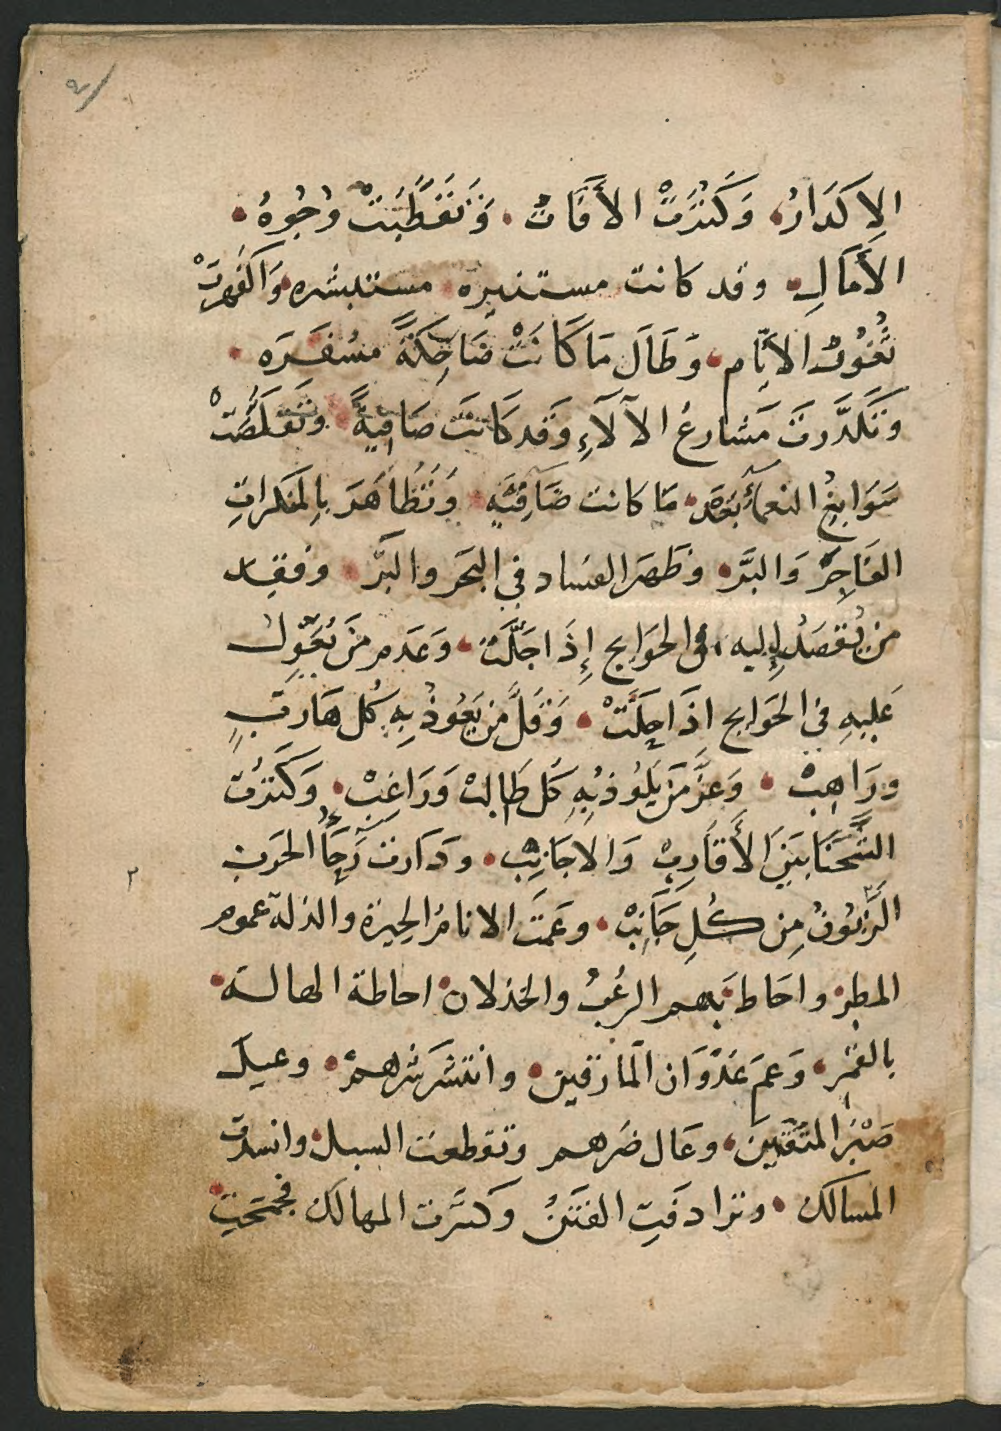 ٢
الاِكَدَارُ، وَكَثُرَتْ الأَفَاتُ . وَتَقَطَّبَتْ وُجُوهُ .
الأَمَالِ . وقد كانت مستنيرة مستبشره وَاكفَهرتْ
ثُغُورُ الايّام، وَطَالَ مَا كَانَتْ ضَاحِكَةً مسُفرَه .
وَتَكَدَّرتَ مَشارعُ الآلَاءِ وَقَد كَانَتَ صَافيةً وتَقَلَّصَتْ
سَوَابِغِ النعمآء بَعَدَ مَا كانت ضَافِيَه وَتُظَاهَرَ بِالمنكراتِ
الفَاجِرُ وَالبَرَّ. وَظَهَر الفساد في البَحَر والبَرِّ . وفقِد
من يُقصَدُ إِليه، في الحَوَايج إِذَا جَلَّتَ . وَعَدم مَنَ يُعَوّلُ
عَليهِ في الحَوَايج اذَا حِلَتْ . وَقَلَّ من يَعُوذُ بِهِ كُل هَاربٍ
ورَاهِبٌ . وَعَزَّ مَنَ يَلُوذ بُهِ كَل طَالبٌ وَرَاغبٌ . وَكَثرُتَ
الشَّحَنَا بيَنَ الأَقَاربِ وَالاجَانِبِ . ودَارتَ رَحَآءُ الحَربَ
الزَبُونُ مِن كُلِ جَانِبٌ . وعَمتَ الانامُ الحِيرَة والذلة عموم
المطر واحَاط بَهم الرعُبُ والخذلان احاطة الهالة
بالقمر، وَعمَ عَدْوَان المارقين . وانتشرَ شرهمْ . وعيل
صَبُر المتقينَ . وعَال ضرَهم وتقوطعت السبل وانسدت
المسالك . وترادفَتِ الفتَنُ وكثرت المهالك فجمَحَتِ